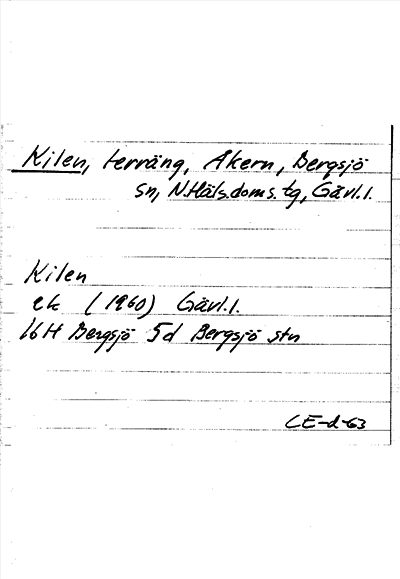 Kilen, terräng, Åkern, Bergsjö
sn, N.Häls.doms.tg, Gävl.l.
Kilen
ek (1960) Gävl.l.
16H Bergsjö 5d Bergsjö stn
CE-d-63